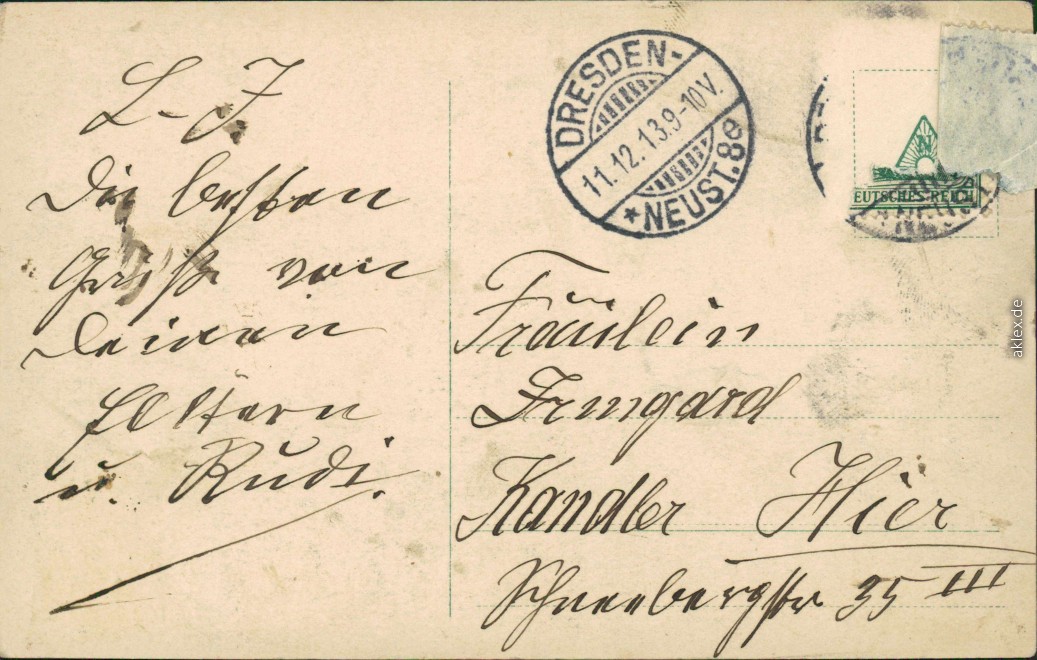 L. J.
Die besten
Grüße von
Deinen
Eltern
u. Rudi.
DRESDEN-
11.12.13.9-10V.
*NEUST.8e
N
EUTSCHES REICH
Fräulein
Irmgard
Kandler Hier
Schneebergstr 35 III
aklex.de